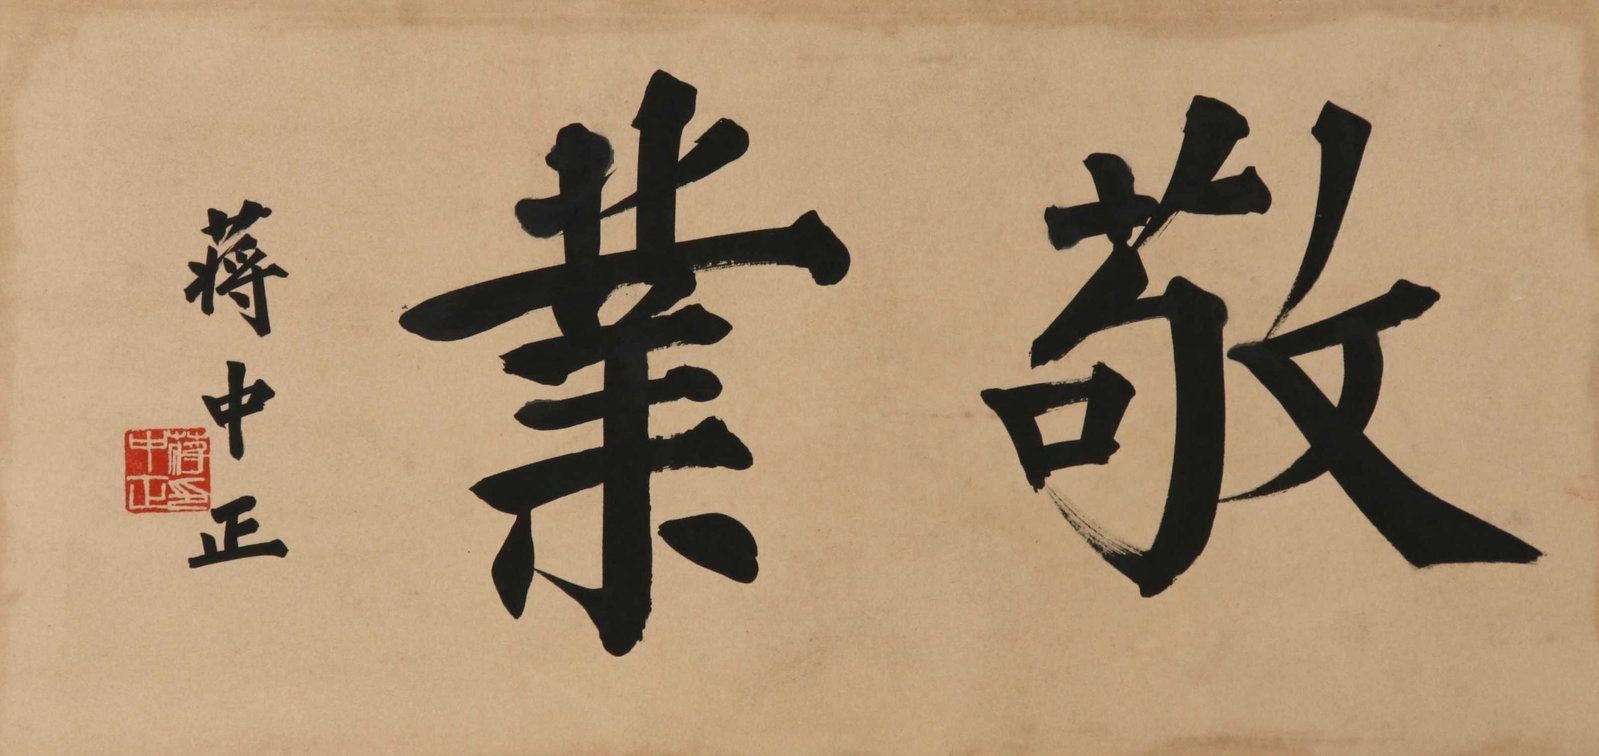 敬業
蔣中正
蔣中正印